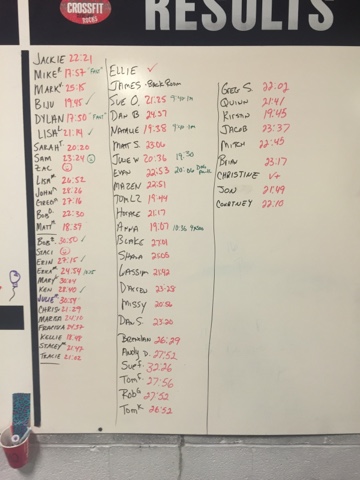 CROSSFIT
ROCKS
RESULTS
JACKIE 22:21
MIKE 17:57 "Fast"
MARK 25:15
BIJU 19:45 ✓
DYLAN 17:50 "Fast"
LISA 21:14 ✓
SARAH 20:20
SAM 23:24
ZAC
LISA 26:52
JOHN 28:26
GREG 27:16
BOB 22:30
MATT 18:59
BOB 30:50 ✓
STACI
ERIN 27:15 ✓
ERIKA 24:54
MARY 30:04
KEN 28:40 ✓
JULIE 30:54
CHRIS 21:29
MARISA 24:10
KELLIE 18:48
STACEY 21:42
TRACIE 21:02
ELLIE ✓
JAMES - Back Room
SUE O. 21:25
DAN B. 24:27
NATALIE 19:38
MATT S. 23:06
JULIE W 20:36 19:30
EVAN 22:53 20:06
MAZEN 22:51
TOM LZ 19:44
HORACE 21:17
ANNA 19:07
BLAKE 27:01
SHANA 25:03
GASSIM 25:42
DARREN 23:28
MISSY 20:56
DAN S. 23:20
BRENDAN 26:29
Andy D. 27:52
Sue F. 32:26
Tom F. 27:56
Rob G 27:52
Tom K 26:52
GREG S. 22:02
QUINN 21:41
KIERAN 19:45
JACOB 23:37
MIEN 22:45
BRIAN 23:17
CHRISTINE
JON 21:49
COURTNEY 22:10